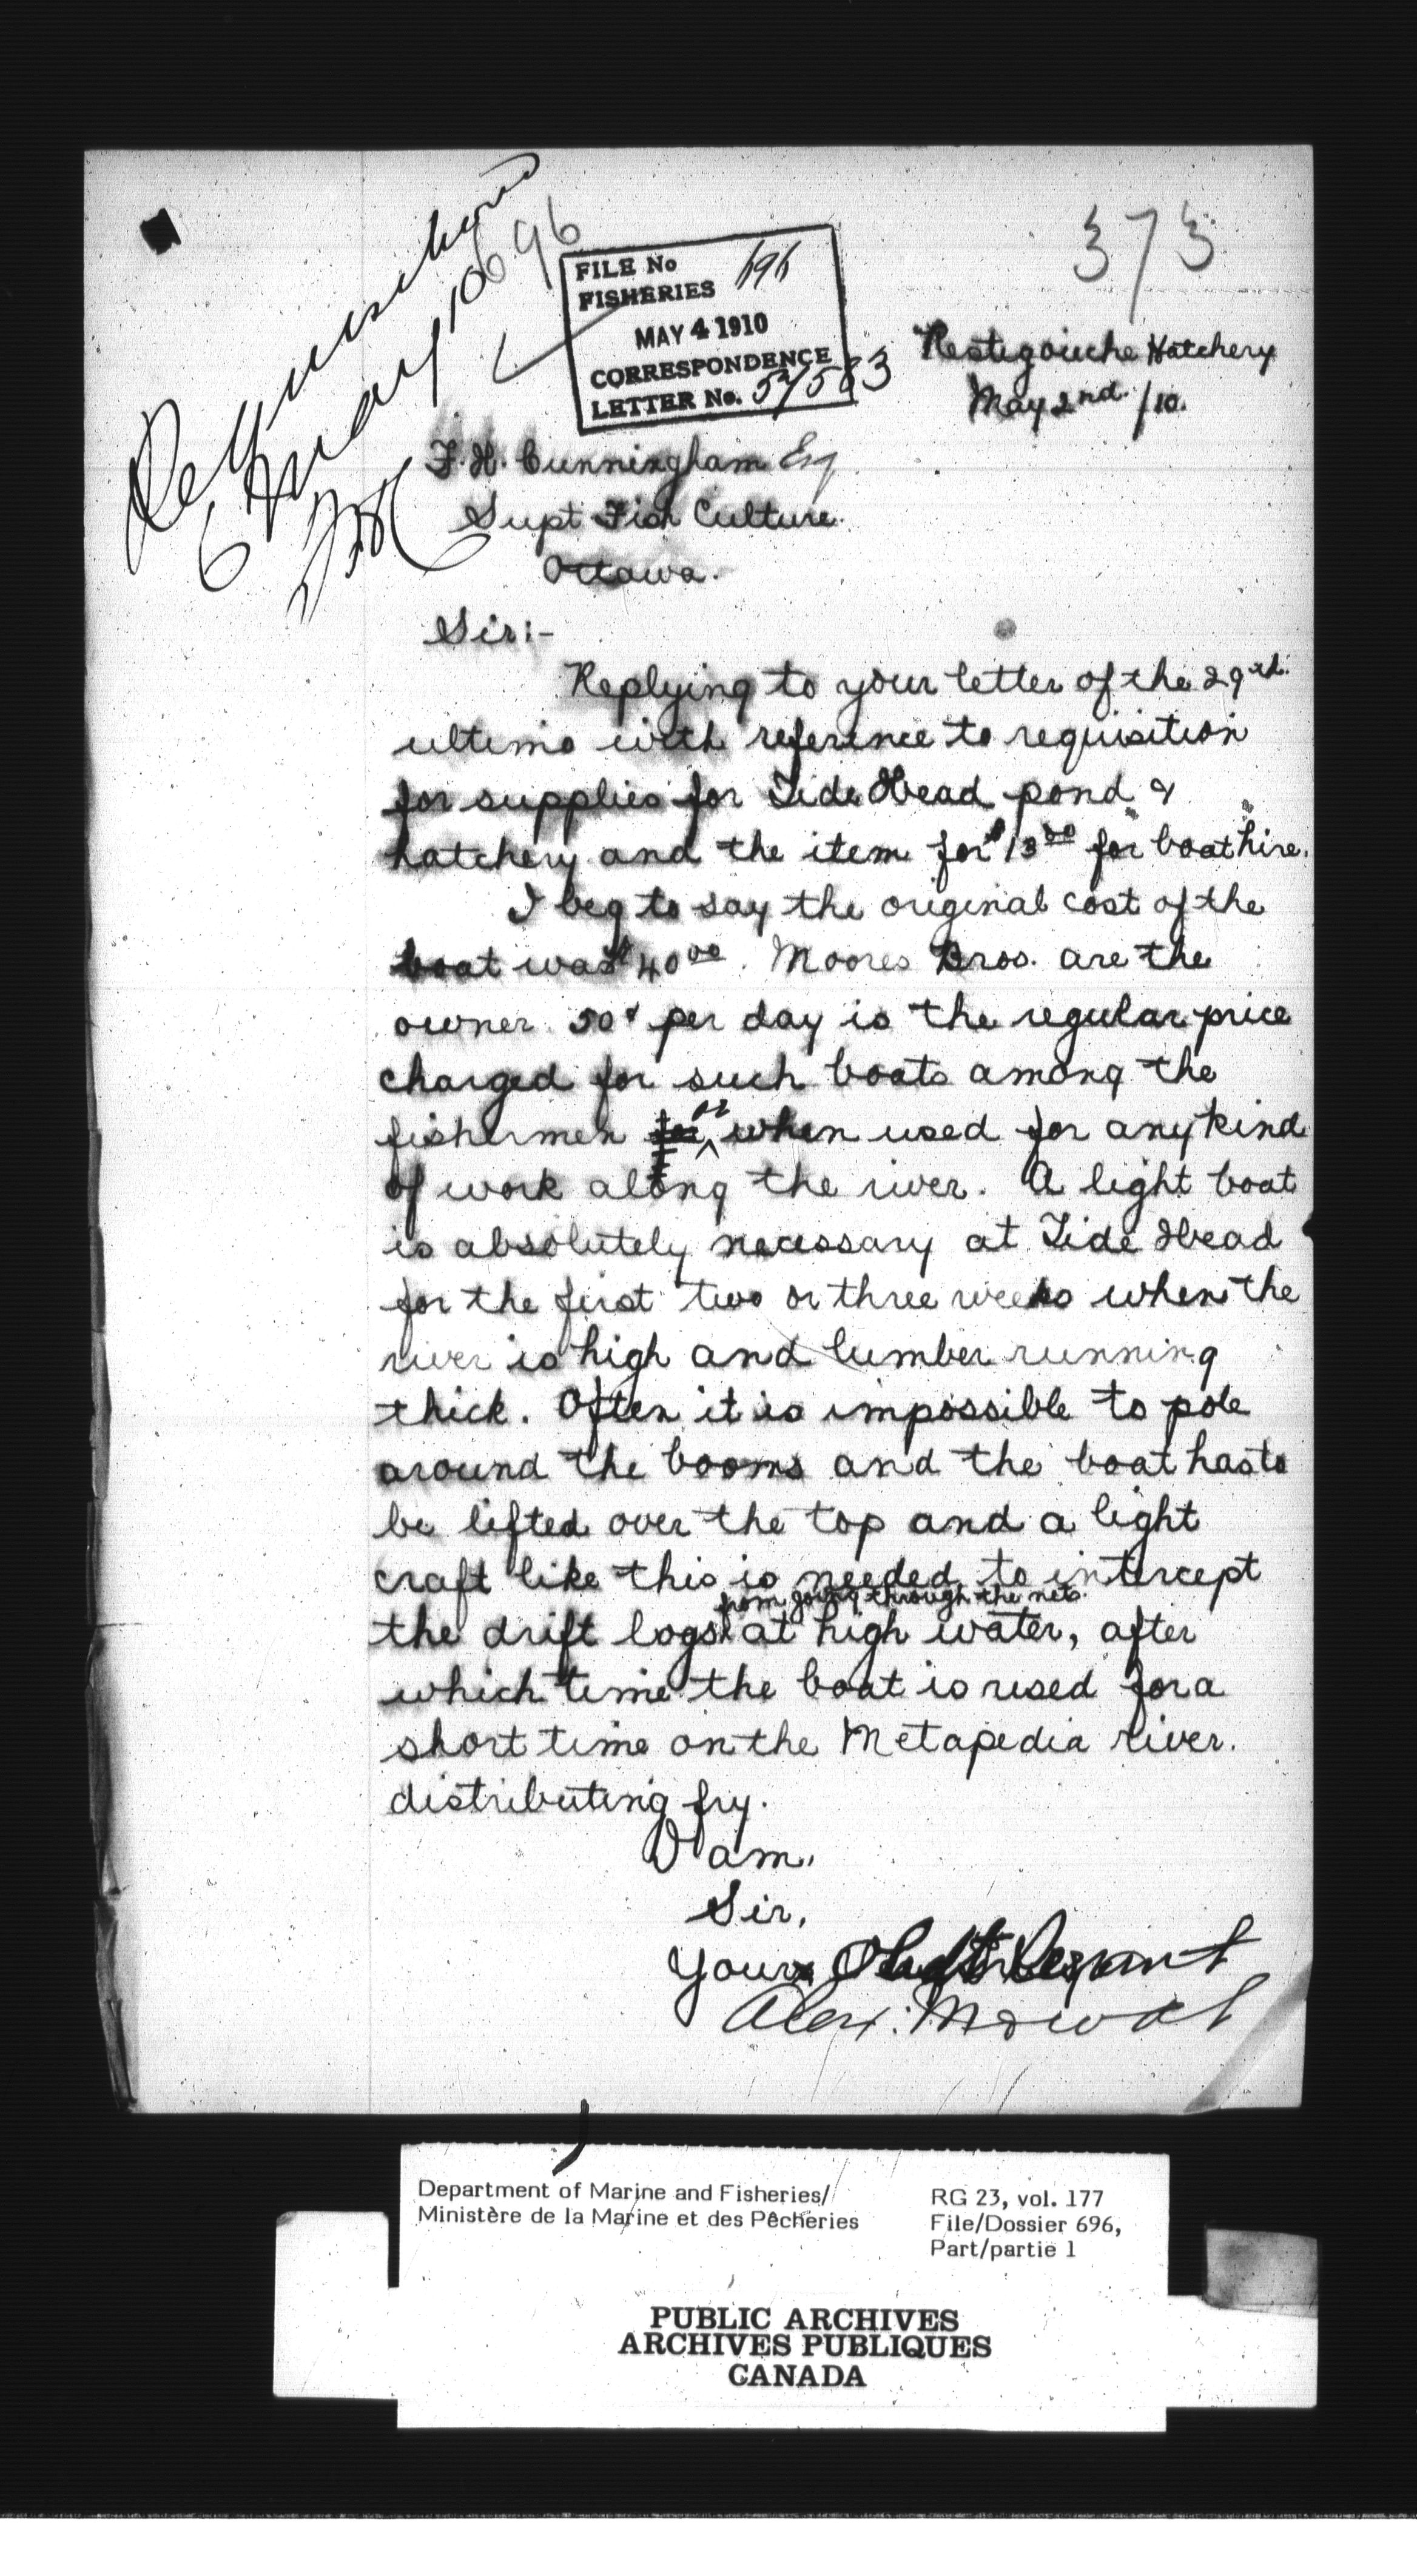 373
696
FILE No
FISHERIES 696
MAY 4 1910
CORRESPONDENCE
LETTER No.
Restigouche Hatchery
May 2nd /10.
F. H. Cunningham Esq
Supt Fish Culture.
Ottawa.
Sir:-
Replying to your letter of the 29th
ultimo with reference to requisition
for supplies for Tide Head pond &
hatchery and the item for $13 00 for boat hire.
I beg to say the original cost of the
boat was $40 00. Moores Bros. are the
owner. 50¢ per day is the regular price
charged for such boats among the
fishermen for or when used for any kind
of work along the river. A light boat
is absolutely necessary at Tide Head
for the first two or three weeks when the
river is high and lumber running
thick. Often it is impossible to pole
around the booms and the boat has to
be lifted over the top and a light
craft like this is needed to intercept
from going through the nets.
the drift logs at high water, after
which time the boat is used for a
short time on the Metapedia river.
distributing fry.
I am,
Sir,
Your Obdt Servant
Alex. Mowat
Department of Marine and Fisheries/
Ministère de la Marine et des Pêcheries
RG 23, vol. 177
File/Dossier 696,
Part/partie 1
PUBLIC ARCHIVES
ARCHIVES PUBLIQUES
CANADA